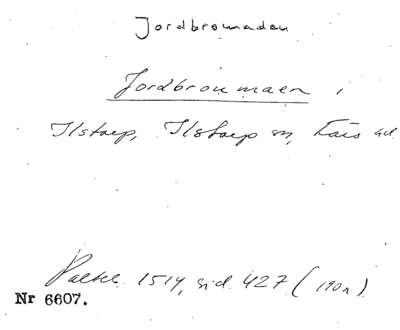 Jordbromaden
Jordbroumaen,
Ilstorp, Ilstorp sn, Färs hd
Palteb. 1514, sid. 427 (190r)
Nr 6607.